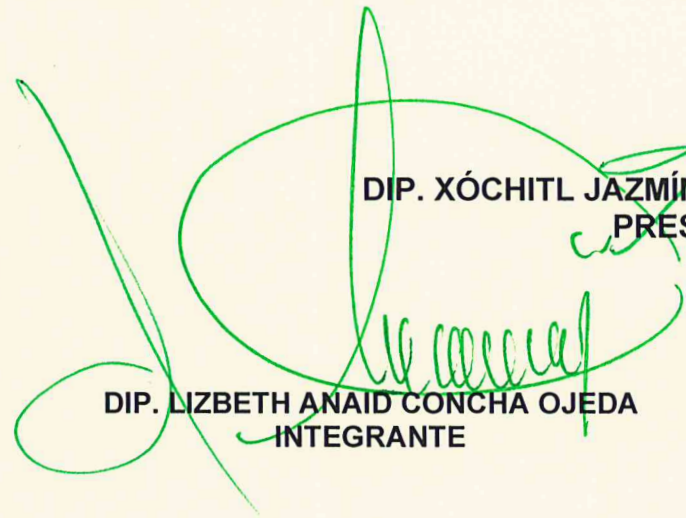 DIP. XÓCHITL JAZMÍN
PRES
DIP. LIZBETH ANAID CONCHA OJEDA
INTEGRANTE